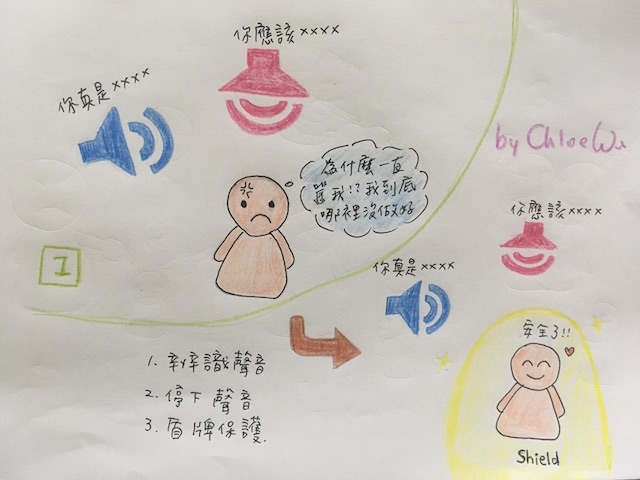 你應該××××
你真是××××
by ChloeWu
為什麼一直
罵我!?我到底
哪裡沒做好
1
你應該××××
你真是××××
安全了!!
1. 辨識聲音
2. 停下聲音
3. 盾牌保護
Shield